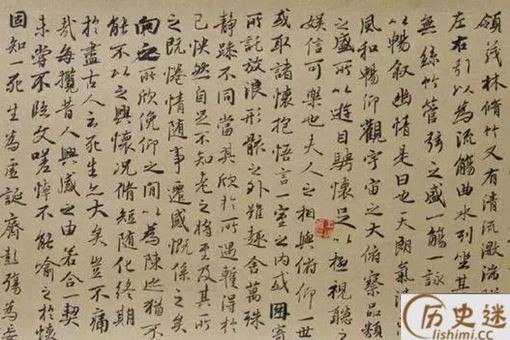 領茂林脩竹又有清流激湍
左右引以為流觴曲水列坐其
無絲竹管弦之盛一觴一詠
以暢叙幽情是日也天朗氣清
風和暢仰觀宇宙之大俯察品類
之盛所以遊目騁懷足以極視聽之
娛信可樂也夫人之相與俯仰一世
或取諸懷抱悟言一室之內或因寄
所託放浪形骸之外雖趣舍萬殊
靜躁不同當其欣於所遇暫得於
己怏然自足不知老之將至及其所
之既惓情隨事遷感慨係之矣
向之所欣俛仰之間以為陳迹猶不
能不以之興懷況脩短隨化終期
於盡古人云死生亦大矣豈不痛
哉每攬昔人興感之由若合一契
未嘗不臨文嗟悼不能喻之於懷
固知一死生為虛誕齊彭殤為妄
历史迷
lishimi.cc